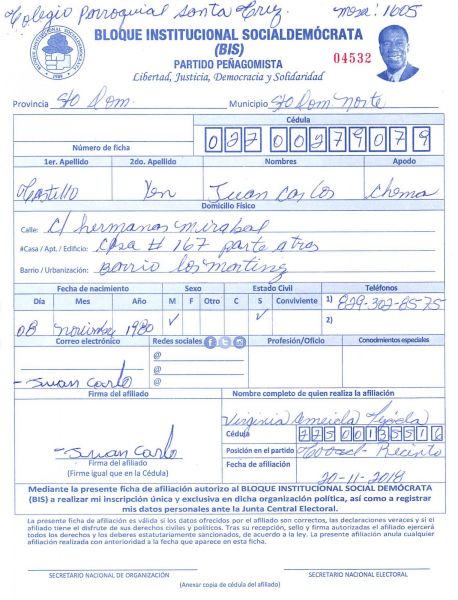 Colegio Parroquial Santa Cruz. Mesa: 1605
BLOQUE INSTITUCIONAL SOCIALDEMÓCRATA
(BIS)
PARTIDO PEÑAGOMISTA
04532
Libertad, Justicia, Democracia y Solidaridad
Provincia Sto Dom. Municipio Sto Dom. Norte
Cédula
Número de ficha 027 0027907 9
1er. Apellido 2do. Apellido Nombres Apodo
Castillo Yen Juan Carlos Chema
Domicilio Físico
Calle: C/ hermanas mirabal
#Casa / Apt. / Edificio: Casa # 167 parte atras
Barrio / Urbanización: Barrio los martinez
Fecha de nacimiento Sexo Estado Civil Teléfonos
Día Mes Año M F Otro C S Conviviente 1) 829-302-8575
08 noviembre 1980 ✓ ✓ 2)
Correo electrónico Redes sociales Profesión/Oficio Conocimientos especiales
@
@
Juan Carlo @
Firma del afiliado Nombre completo de quien realiza la afiliación
Virginia Almeida
Cédula
Posición en el partido Recinto
Juan Carlo
Firma del afiliado Fecha de afiliación
(Firme igual que en la Cédula) 20-11-2018
Mediante la presente ficha de afiliación autorizo al BLOQUE INSTITUCIONAL SOCIAL DEMÓCRATA
(BIS) a realizar mi inscripción única y exclusiva en dicha organización política, así como a registrar
mis datos personales ante la Junta Central Electoral.
La presente ficha de afiliación es válida si los datos ofrecidos por el afiliado son correctos, las declaraciones veraces y si el
afiliado tiene el disfrute de sus derechos civiles y políticos. Tras su recepción, sello y firma autorizadas el afiliado ejercerá
todos los derechos y los deberes estatutariamente sancionados, de acuerdo a la ley. La presente afiliación anula cualquier
afiliación realizada con anterioridad a la fecha que aparece en esta ficha.
SECRETARIO NACIONAL DE ORGANIZACIÓN SECRETARIO NACIONAL ELECTORAL
(Anexar copia de cédula del afiliado)